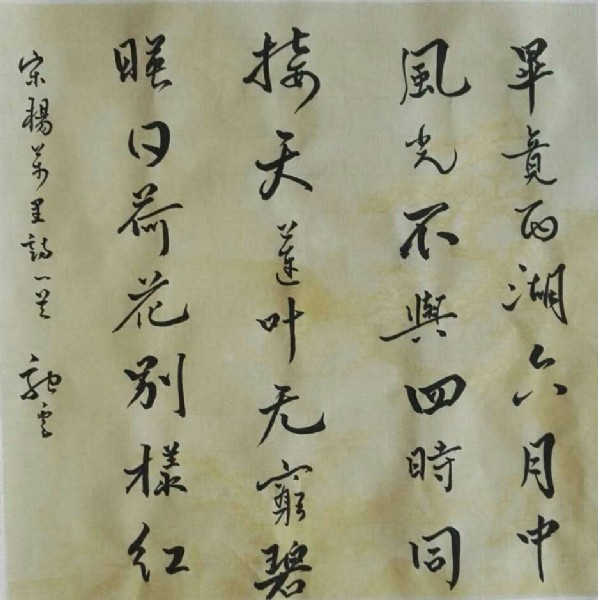 畢竟西湖六月中
風光不與四時同
接天蓮叶无窮碧
映日荷花别樣紅
宋楊萬里詩一首 馳雲